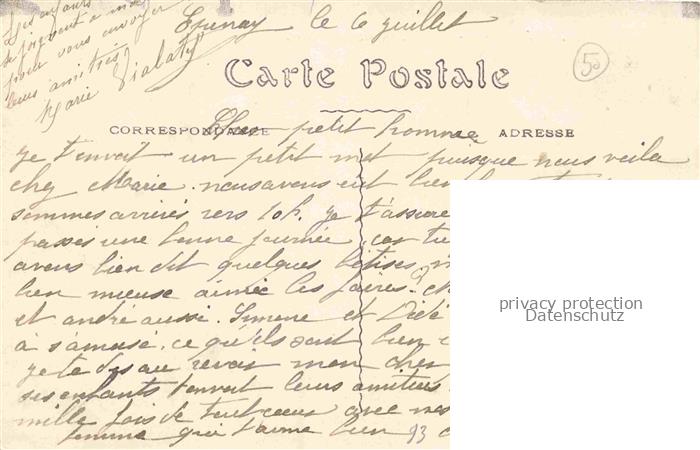 Les enfants
se joignent à moi
pour vous envoyer
leurs amitiés
Marie Vialaty
Epinay le 6 juillet
50
Carte Postale
CORRESPONDANCE ADRESSE
petit homme
Je t'envoit un petit mot puisque nous voila
chez Marie. nous avons eut bien
sommes arrivés vers 10h. Je t'assure
passés une bonne journée, car tu
avons bien dit quelques bêtises
bien mieuse aimée les faires.
et andré aussi. Simone et Dédé
à s'amusé. ce qu'ils sont bien
Je te dis au revoir mon cher
ses enfants t'envoit leurs amitiés
mille fois de tout coeur avec nos
femme qui t'aime bien 93
privacy protection
Datenschutz